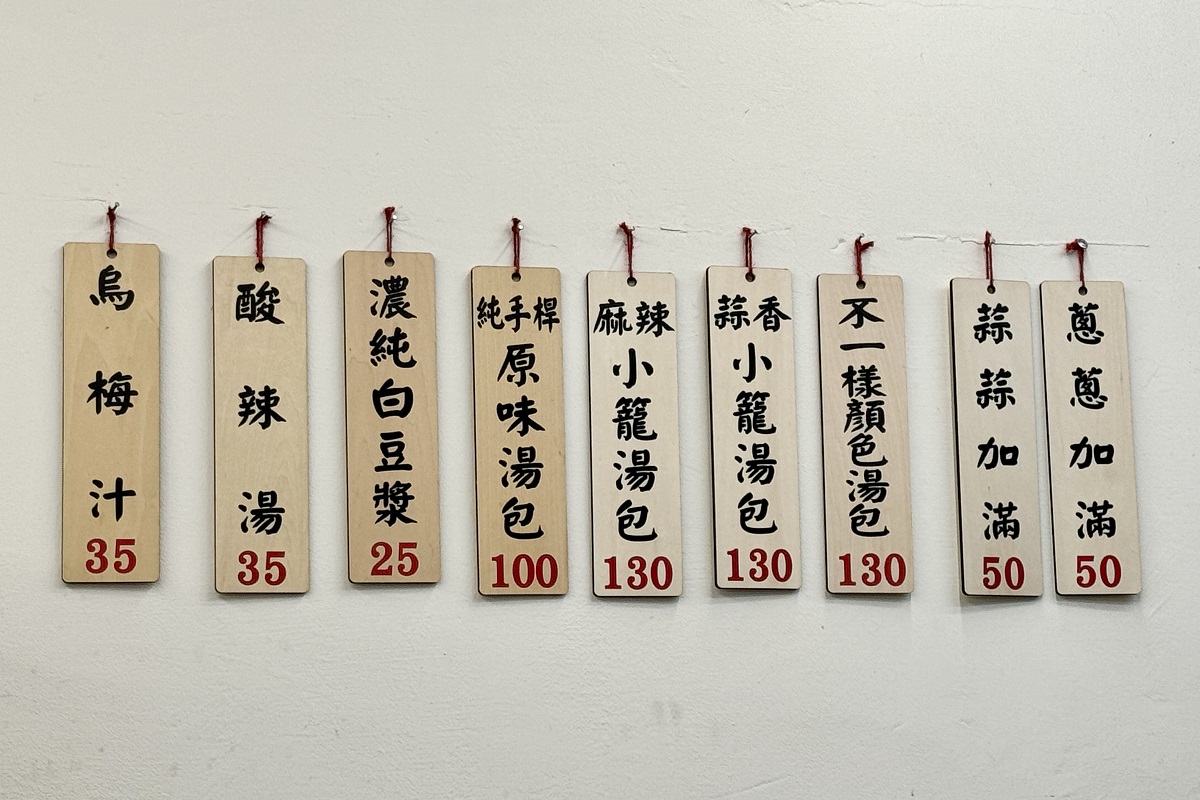 烏梅汁
35
酸辣湯
35
濃純白豆漿
25
純手桿
原味湯包
100
麻辣
小籠湯包
130
蒜香
小籠湯包
130
不一樣顏色湯包
130
蒜蒜加滿
50
蔥蔥加滿
50